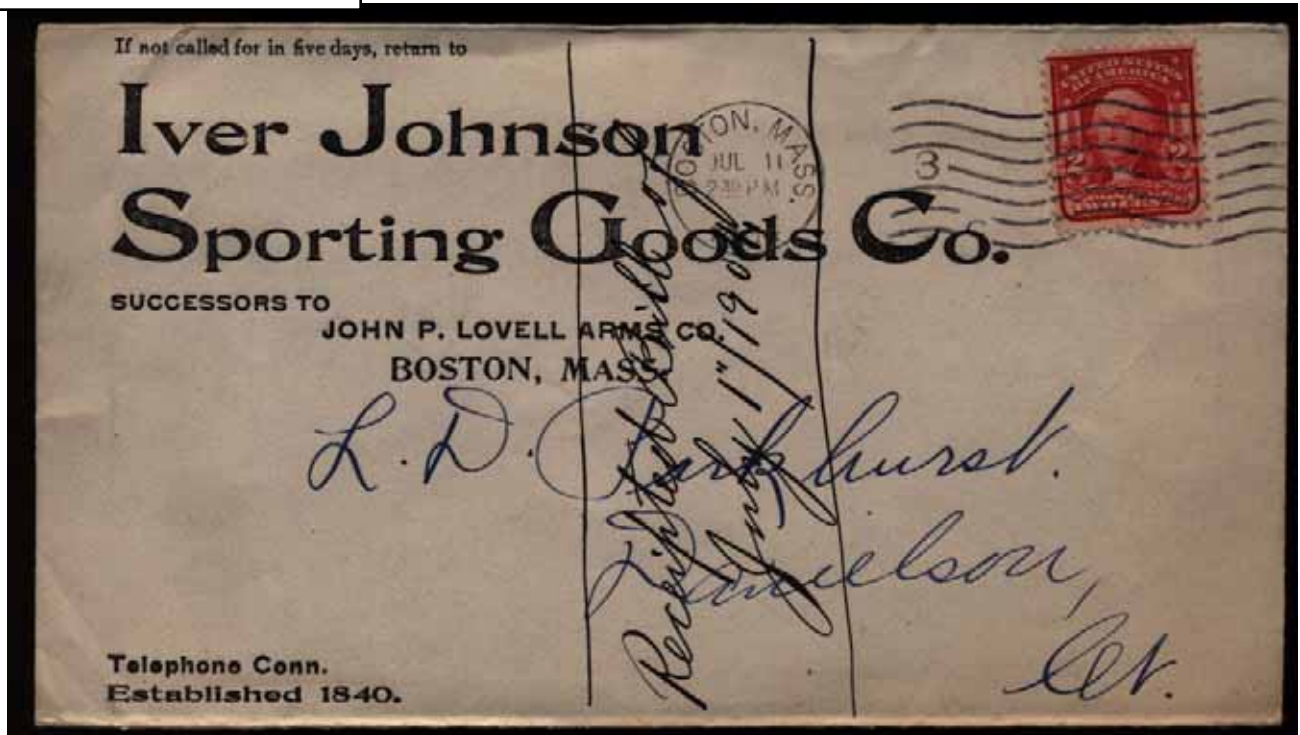 If not called for in five days, return to
Iver Johnson
Sporting Goods Co.
SUCCESSORS TO
JOHN P. LOVELL ARMS CO.
BOSTON, MASS.
BOSTON, MASS.
JUL 11
2 30 PM
3
UNITED STATES
OF AMERICA
2 2
L. D. Parkhurst.
Danielson,
Ct.
Receipted Bills to
1" 190
Telephone Conn.
Established 1840.